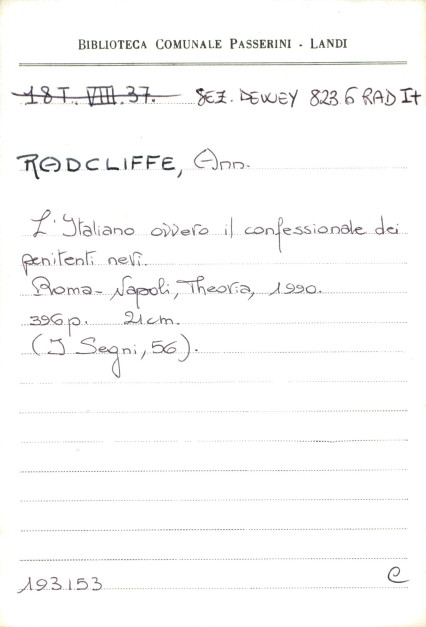 BIBLIOTECA COMUNALE PASSERINI - LANDI
18 I. VIII.37. SEZ. DEWEY 823.6 RAD It
RADCLIFFE, Ann.
L'Italiano ovvero il confessionale dei
penitenti neri.
Roma - Napoli, Theoria, 1990.
396 p. 21 cm.
(I Segni, 56).
193153 C